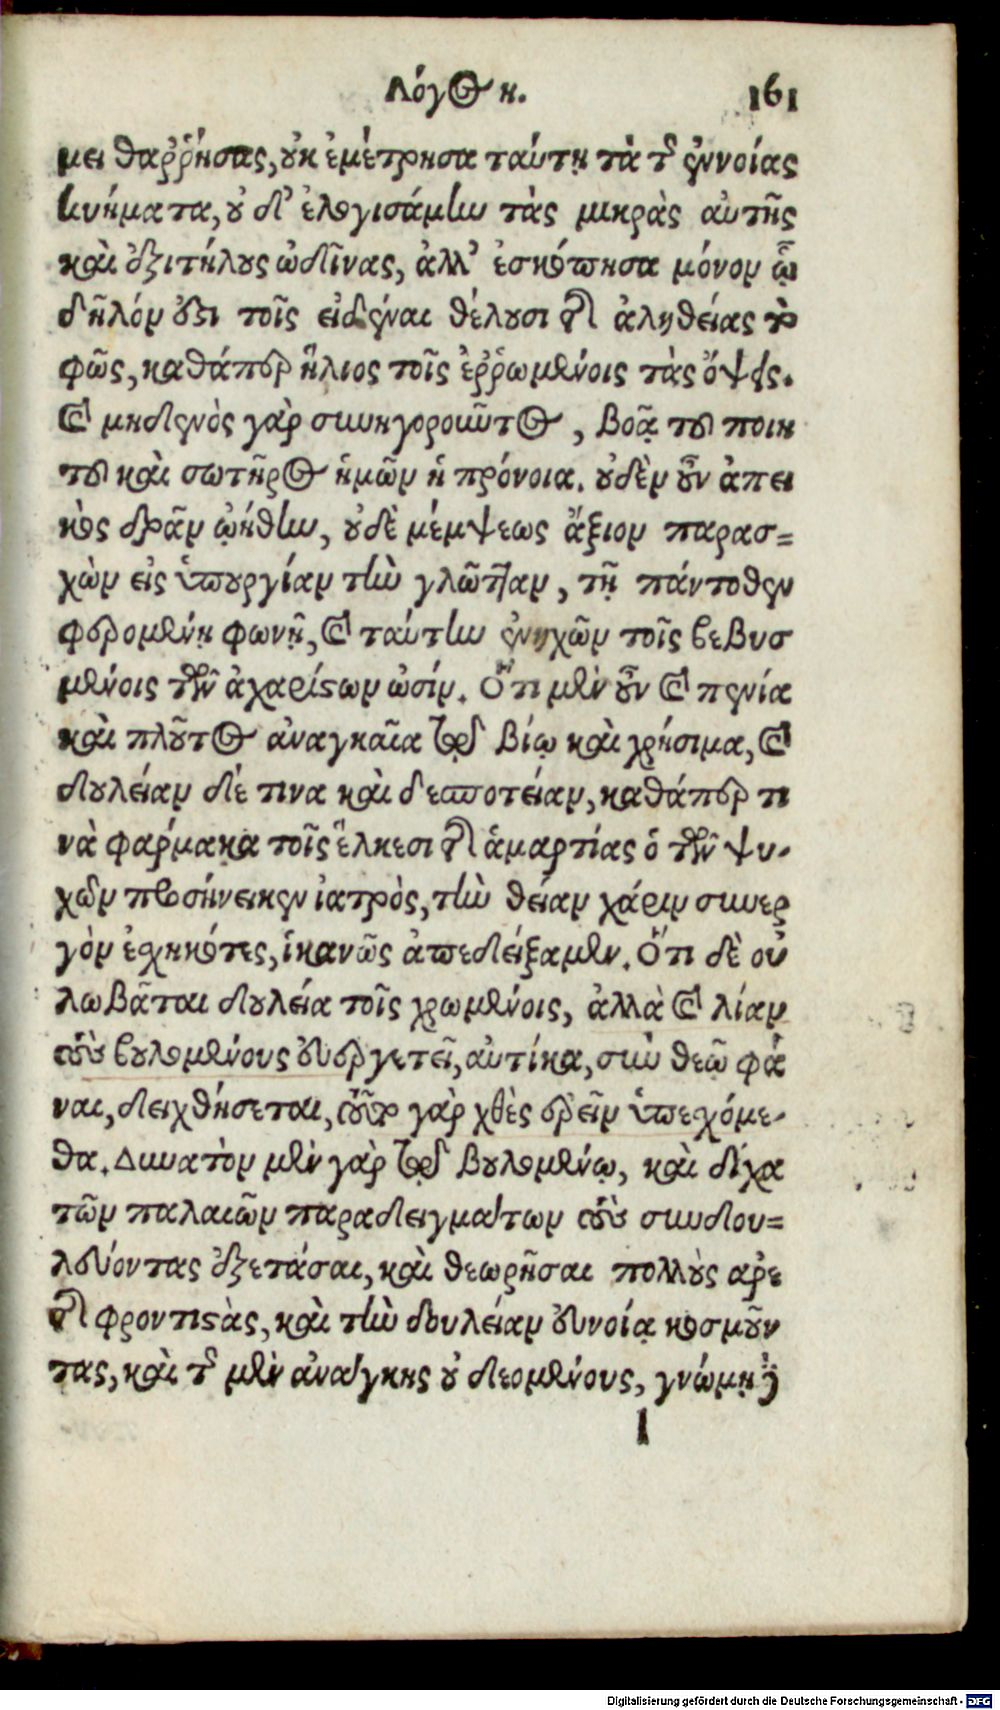 Λόγος η. 161
μει θαῤῥήσας, οὐκ ἐμέτρησα ταύτῃ τὰ τῆς ἐννοίας
κινήματα, οὐδ' ἐλογισάμην τὰς μικρὰς αὐτῆς
καὶ ἐξιτήλους ὠδῖνας, ἀλλ' ἐσκόπησα μόνον ᾧ
δῆλόν ἐστι τοῖς εἰδέναι θέλουσι τῆς ἀληθείας τὸ
φῶς, καθάπερ ἥλιος τοῖς ἐῤῥωμένοις τὰς ὄψεις.
καὶ μηδενὸς γὰρ συνηγοροῦντος, βοᾷ τοῦ ποιη
τοῦ καὶ σωτῆρος ἡμῶν ἡ πρόνοια. οὐδὲν οὖν ἀπει
κὸς δρᾶν ᾠήθην, οὐδὲ μέμψεως ἄξιον παρασ=
χὼν εἰς ὑπουργίαν τὴν γλῶτταν, τῇ πάντοθεν
φερομένῃ φωνῇ, καὶ ταύτην ἐνηχῶν τοῖς βεβυσ
μένοις τῶν ἀχαρίστων ὠσίν. Ὅτι μὲν οὖν καὶ πενία
καὶ πλοῦτος ἀναγκαῖα τῷ βίῳ καὶ χρήσιμα, καὶ
δουλείαν δέ τινα καὶ δεσποτείαν, καθάπερ τι
νὰ φαρμακα τοῖς ἕλκεσι τῆς ἁμαρτίας ὁ τῶν ψυ-
χῶν προσήνεικεν ἰατρὸς, τὴν θείαν χάριν συνερ
γὸν ἐσχηκότες, ἱκανῶς ἀπεδείξαμεν. Ὅτι δὲ οὐ
λωβᾶται δουλεία τοῖς χρωμένοις, ἀλλὰ καὶ λίαν
τοὺς βουλομένους εὐεργετεῖ, αὐτίκα, σὺν θεῷ φά
ναι, δειχθήσεται, τοῦτο γὰρ χθὲς ἐρεῖν ὑπεσχόμε-
θα. Δυνατὸν μὲν γὰρ τῷ βουλομένῳ, καὶ δίχα
τῶν παλαιῶν παραδειγμάτων τοὺς σὺν δου=
λεύοντας ἐξετάσαι, καὶ θεωρῆσαι πολλοὺς ἀρε
τῆς φροντιστὰς, καὶ τὴν δουλείαν εὐνοίᾳ κοσμοῦν
τας, καὶ τῆς μὲν ἀνάγκης οὐ δεομένους, γνώμῃ δὲ
l
Digitalisierung gefördert durch die Deutsche Forschungsgemeinschaft - DFG